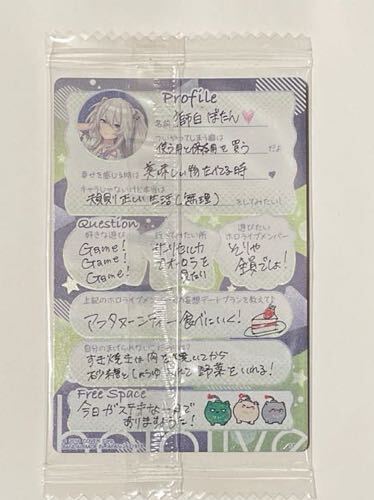 Profile
名前 獅白ぼたん
ついやってしまう癖は
使う用と保存用を買う だよ
幸せを感じる時は 美味しい物たべてる時
キャラじゃないけど本当は
規則正しい生活(無理) をしてみたい!
Question
好きな遊び
Game!
Game!
Game!
行ってみたい所
でオーロラを
見たい
遊びたい
ホロライブメンバー
そりゃ
全員でしょ!
上記のホロライブメンバーとの妄想デートプランを教えて♪
アフタヌーンティー食べにいく!
自分のまげられないこだわりは?
すき焼きは肉を焼いてから
砂糖としょうゆ 野菜をいれる!
Free Space
今日がステキな一日で
ありますように!
hololive